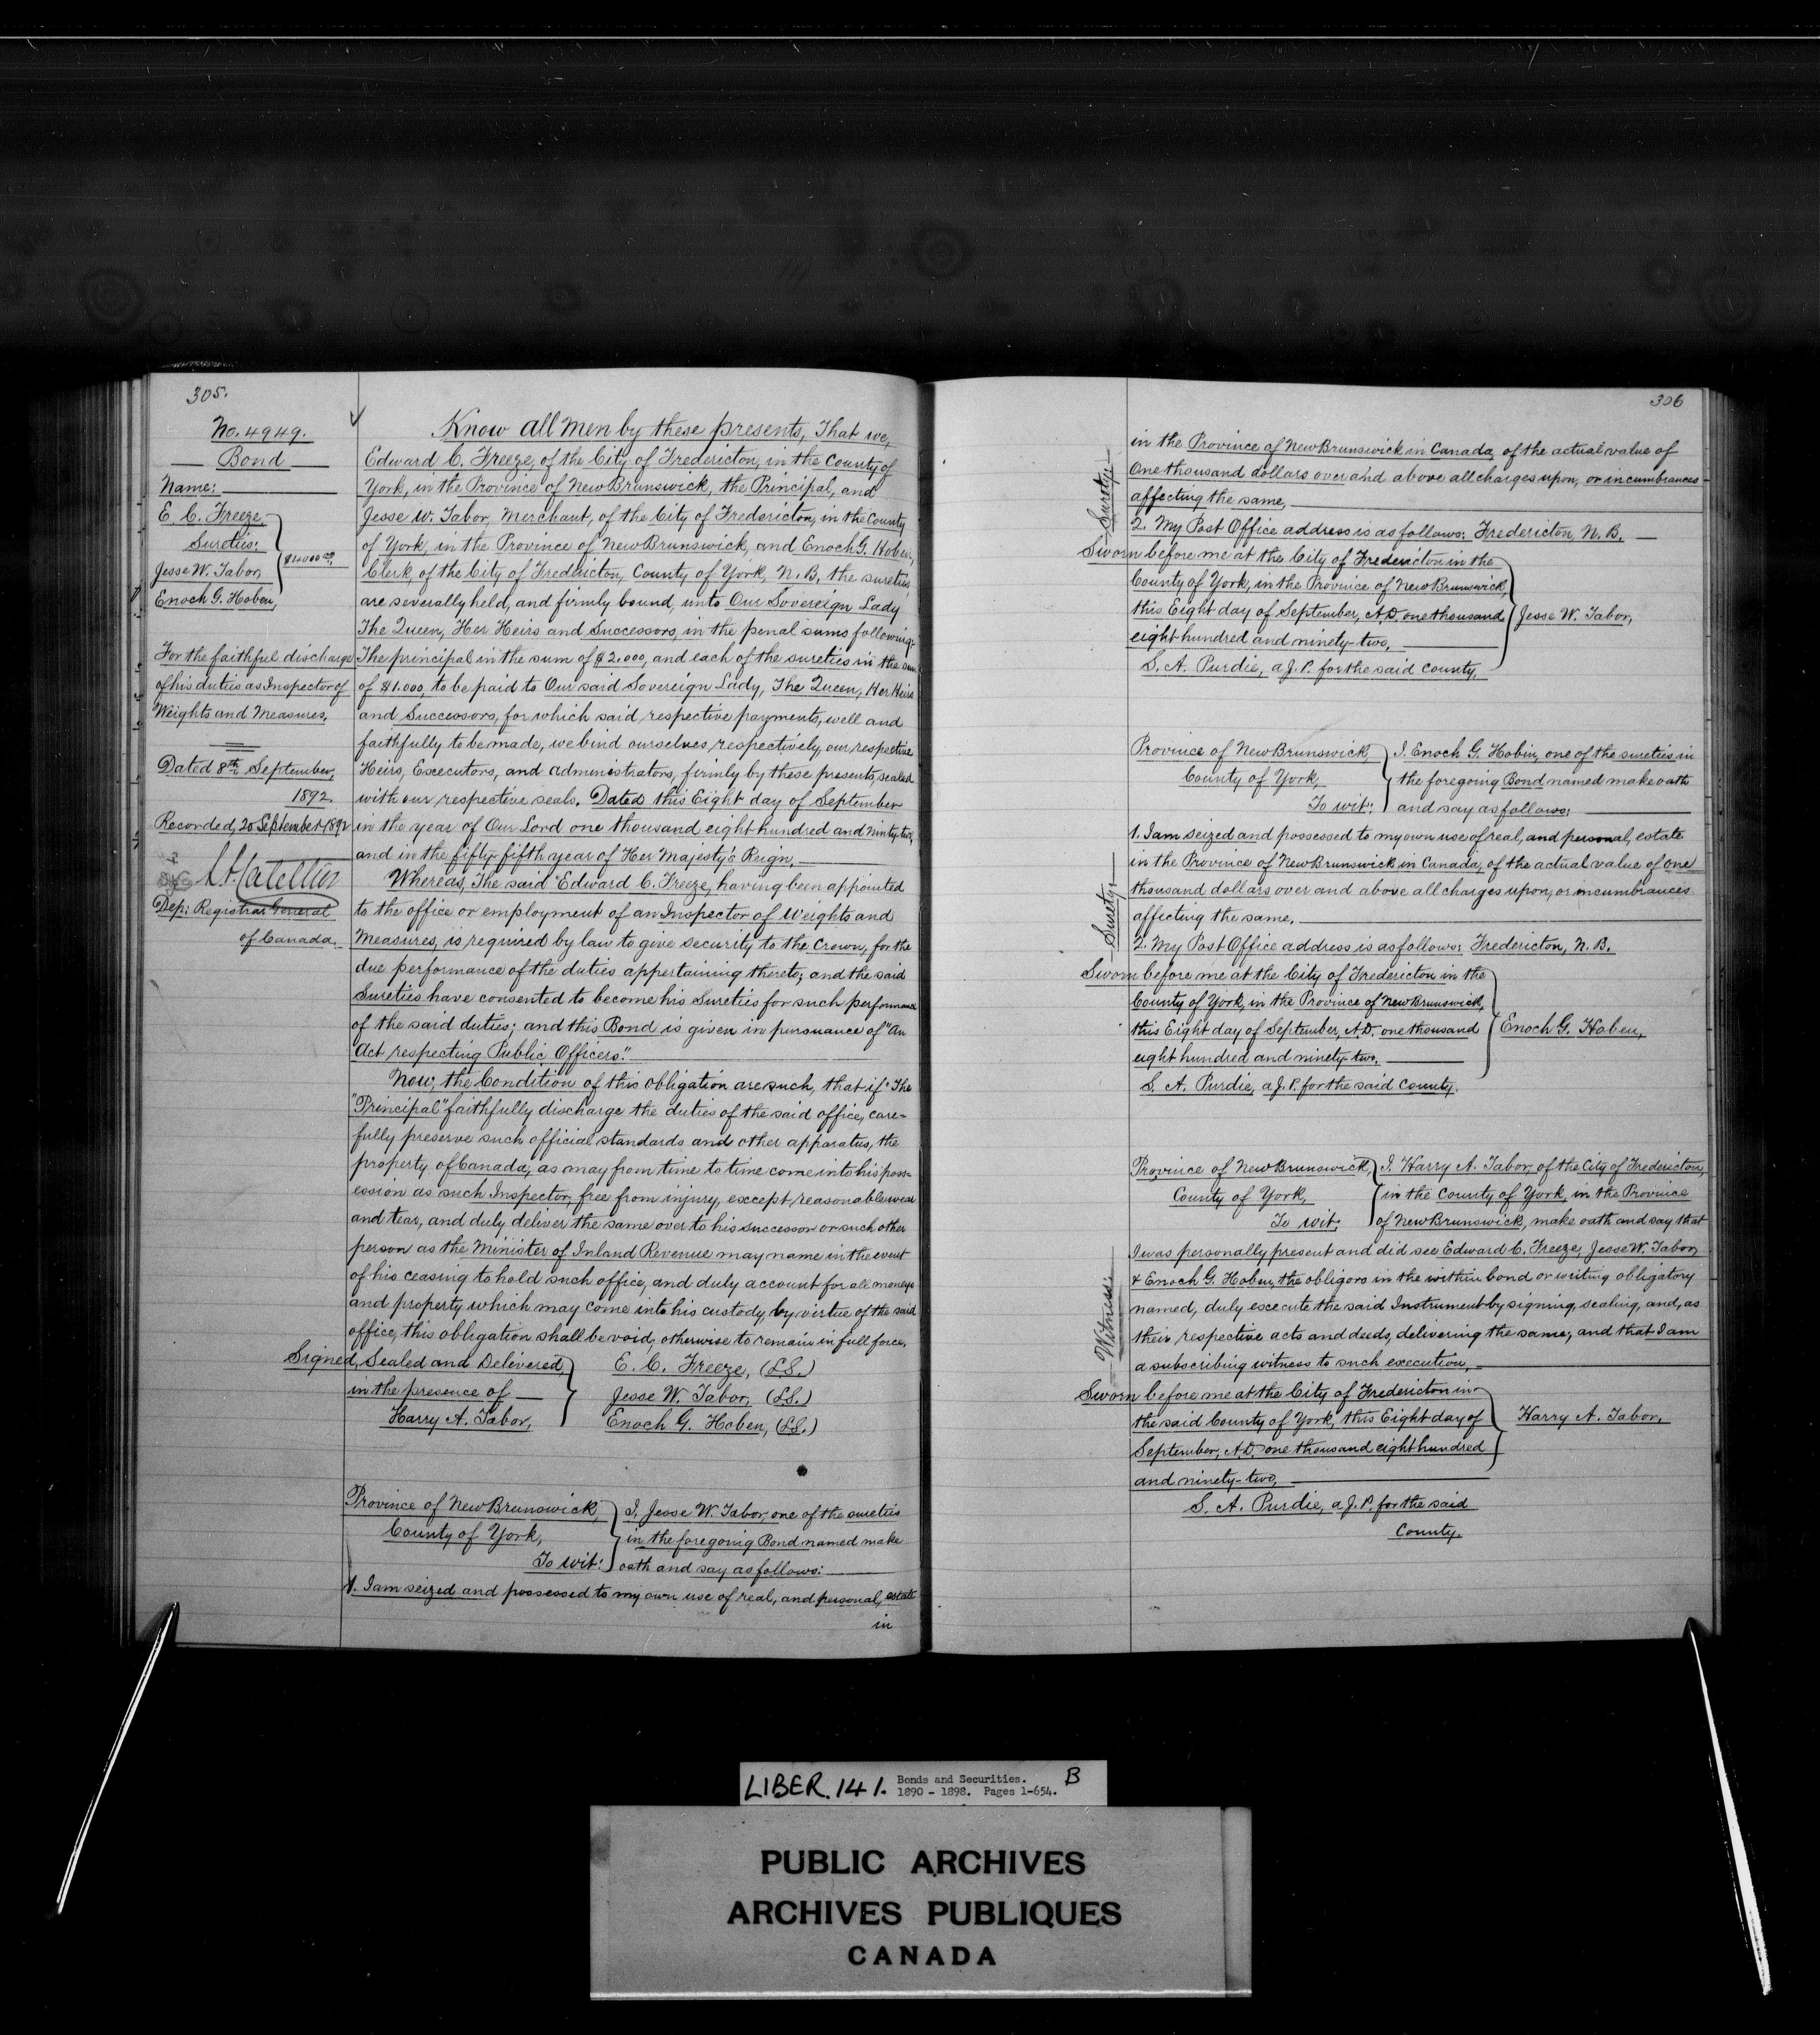 305.
No. 4949.
Bond
Name:
E. C. Freeze,
Sureties:
$4000.00
Jesse W. Tabor,
Enoch G. Hoben,
For the faithful discharge
of his duties as Inspector of
Weights and Measures,
Dated 8th September,
1892.
Recorded, 20 September 1892
L. A. Catellier
Dep: Registrar General
of Canada.
Know all men by these presents, That we,
Edward C. Freeze, of the City of Fredericton, in the County of
York, in the Province of New Brunswick, the Principal, and
Jesse W. Tabor, Merchant, of the City of Fredericton, in the County
of York, in the Province of New Brunswick, and Enoch G. Hoben,
Clerk, of the City of Fredericton, County of York, N.B. the sureties,
are severally held, and firmly bound, unto Our Sovereign Lady
The Queen, Her Heirs and Successors, in the penal sums following:
The principal in the sum of $2.000, and each of the sureties in the sum
of $1.000, to be paid to Our said Sovereign Lady, The Queen, Her Heirs
and Successors, for which said respective payments, well and
faithfully to be made, we bind ourselves, respectively, our respective
Heirs, Executors, and administrators, firmly by these presents, sealed
with our respective seals. Dated this Eight day of September
in the year of Our Lord one thousand eight hundred and ninety two,
and in the fifty-fifth year of Her Majesty's Reign,
Whereas, The said Edward C. Freeze, having been appointed
to the office or employment of an Inspector of Weights and
Measures, is required by law to give security to the Crown, for the
due performance of the duties appertaining thereto; and the said
Sureties have consented to become his Sureties for such performance
of the said duties; and this Bond is given in pursuance of "An
Act respecting Public Officers."
Now, the Condition of this obligation are such, that if "The
"Principal" faithfully discharge the duties of the said office, care-
fully preserve such official standards and other apparatus, the
property of Canada, as may from time to time come into his poss-
ession as such Inspector, free from injury, except reasonable wear
and tear, and duly deliver the same over to his successor or such other
person as the Minister of Inland Revenue may name in the event
of his ceasing to hold such office, and duly account for all moneys
and property which may come into his custody, by virtue of the said
office, this obligation shall be void, otherwise to remain in full force.
Signed, Sealed and Delivered, E. C. Freeze, (LS.)
in the presence of Jesse W. Tabor, (LS.)
Harry A. Tabor, Enoch G. Hoben, (LS.)
Province of New Brunswick, I, Jesse W. Tabor, one of the sureties
County of York, in the foregoing Bond named make
To wit: oath and say as follows:
1. I am seized and possessed to my own use of real, and personal, estate
in
306
Surety:
in the Province of New Brunswick in Canada, of the actual value of
One thousand dollars over and above all charges upon, or incumbrances
affecting the same,
2. My Post Office address is as follows: Fredericton, N.B.
Sworn before me at the City of Fredericton in the
County of York, in the Province of New Brunswick,
this Eight day of September, A.D. one thousand Jesse W. Tabor,
eight hundred and ninety-two,
S. A. Purdie, a J.P. for the said County.
Province of New Brunswick I, Enoch G. Hoben, one of the sureties in
County of York, the foregoing Bond named make oath
To wit: and say as follows:
Surety:
1. I am seized and possessed to my own use of real, and personal, estate
in the Province of New Brunswick in Canada, of the actual value of one
thousand dollars over and above all charges upon, or incumbrances
affecting the same.
2. My Post Office address is as follows: Fredericton, N.B.
Sworn before me at the City of Fredericton in the
County of York, in the Province of New Brunswick,
this Eight day of September, A.D. one thousand Enoch G. Hoben,
eight hundred and ninety-two,
S. A. Purdie, a J.P. for the said County.
Province of New Brunswick, I, Harry A. Tabor, of the City of Fredericton,
County of York, in the County of York, in the Province
To wit: of New Brunswick, make oath and say that
Witness:
I was personally present and did see Edward C. Freeze, Jesse W. Tabor,
& Enoch G. Hoben, the obligors in the within bond or writing obligatory
named, duly execute the said Instrument by signing, sealing, and, as
their respective acts and deeds, delivering the same, and that I am
a subscribing witness to such execution,
Sworn before me at the City of Fredericton in
the said County of York, this Eight day of Harry A. Tabor,
September, A.D. one thousand eight hundred
and ninety-two,
S. A. Purdie, a J.P. for the said
County.
LIBER. 141. Bonds and Securities. B
1890 - 1898. Pages 1-654.
PUBLIC ARCHIVES
ARCHIVES PUBLIQUES
CANADA